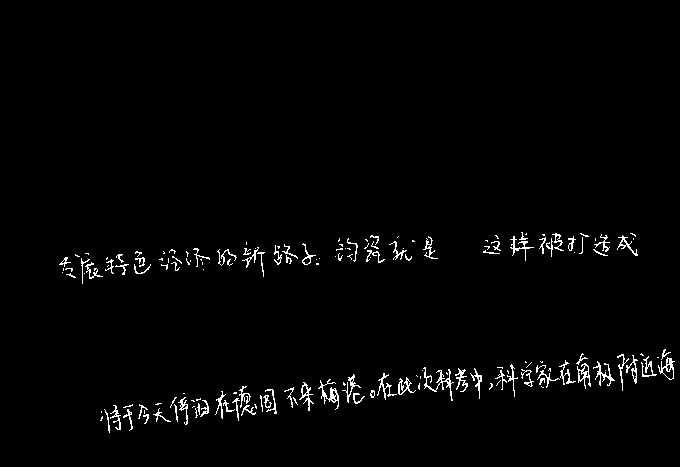 发展特色经济的新路子。钧瓷就是 这样被打造成
将于今天停泊在德国不来梅港。在此次科考中,科学家在南极附近海